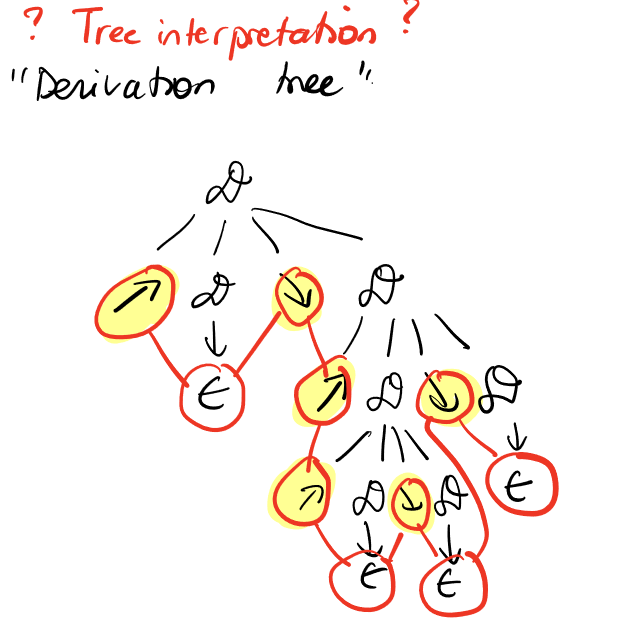 ? Tree interpretation ?
"Derivation tree"
D
↗ D ↘ D
ϵ ↗ D ↘ D
↗ D ↘ D ϵ
ϵ ϵ